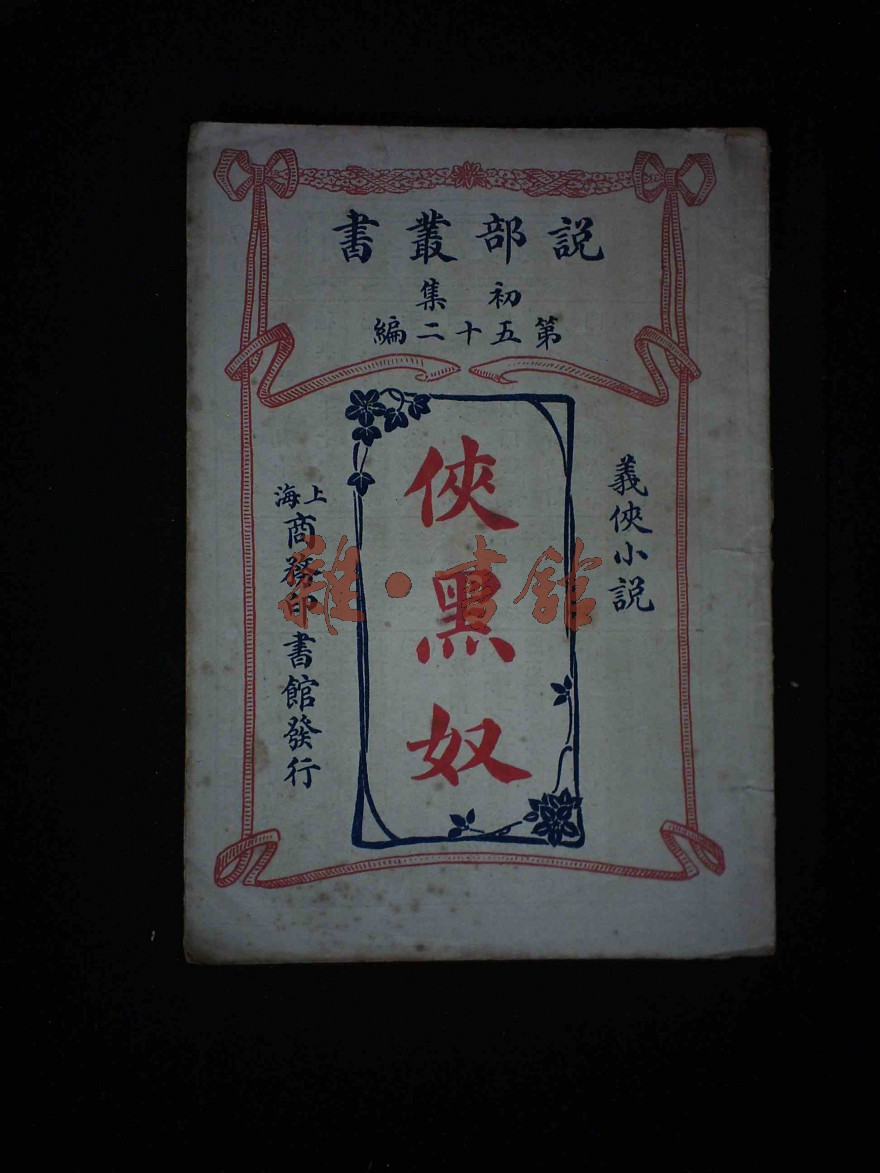 説部叢書
初集
第五十二編
義俠小説
俠黑奴
上海
商務印書館發行
雜·書館